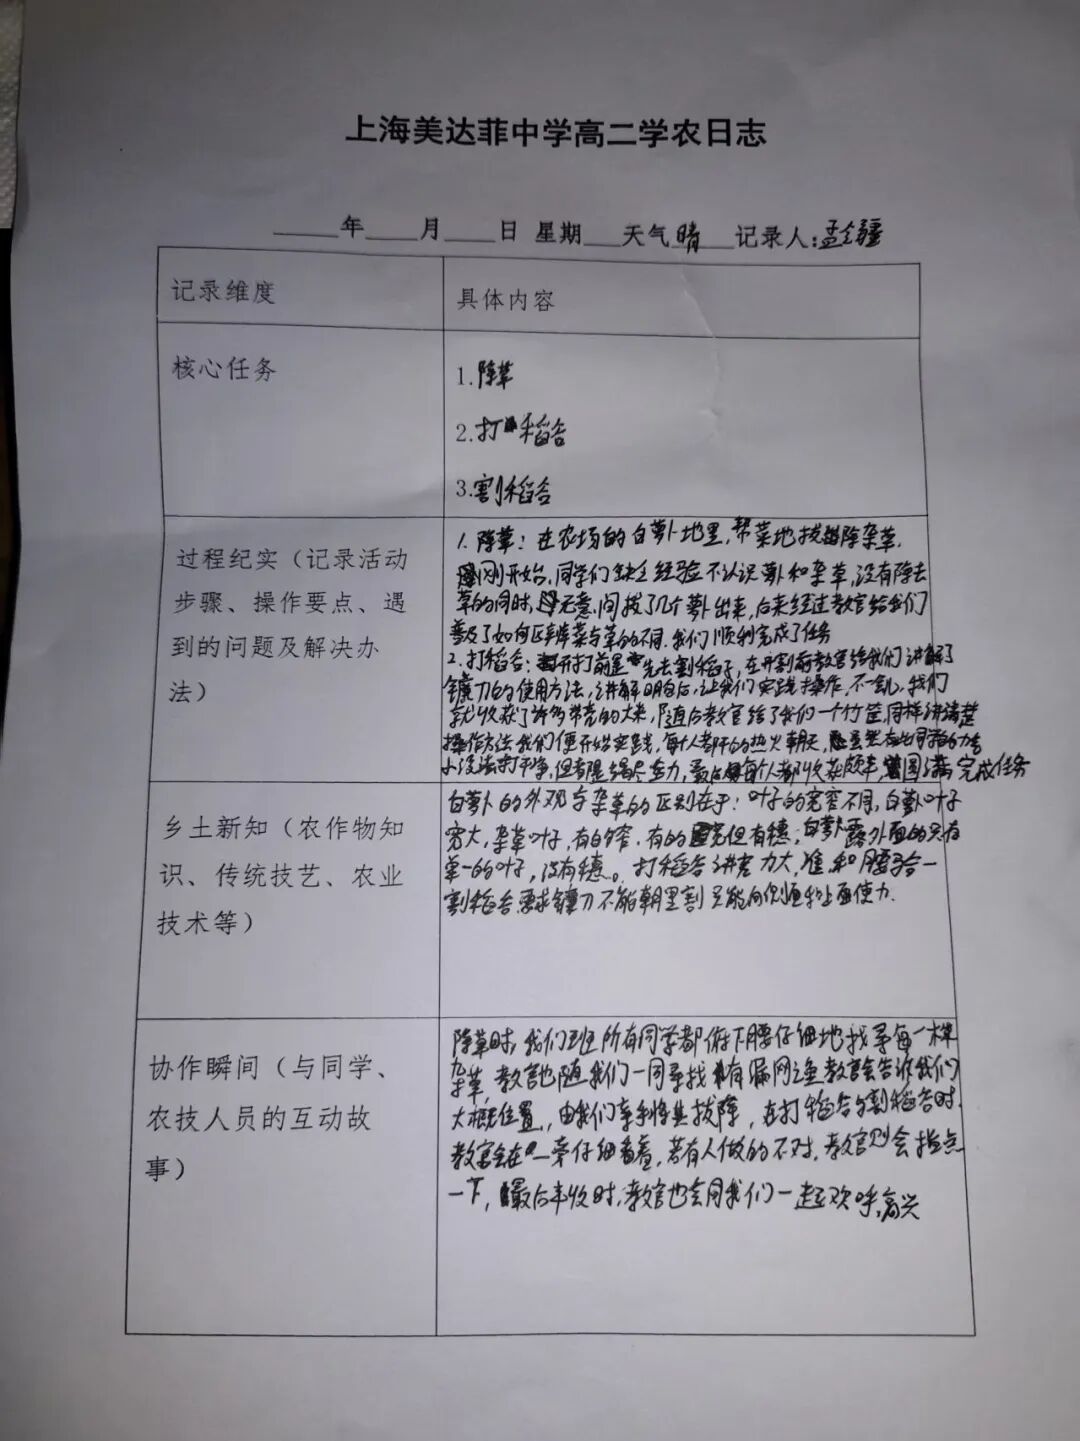 上海美达菲中学高二学农日志
____年____月____日 星期___天气晴__记录人:孟疆
记录维度
具体内容
核心任务
1.除草
2.打稻谷
3.割稻谷
过程纪实（记录活动
步骤、操作要点、遇
到的问题及解决办
法）
1. 除草：在农场的白萝卜地里，帮菜地拔除杂草，
刚开始，同学们缺乏经验不认识萝卜和杂草，没有除去
草的同时，无意间拔了几个萝卜出来，后来经过教官给我们
普及了如何区辨菜与草的不同，我们顺利完成了任务
2. 打稻谷：开打前是先去割稻子，在开割前教官给我们讲解了
镰刀的使用方法，讲解明白后，让我们实践操作，不一会儿，我们
就收获了许多带壳的大米，随后教官给了我们一个竹筐，同样讲清楚
操作方法我们便开始实践，每个人都干的热火朝天，虽然有些同学的力气
小没法打干净，但都竭尽全力，最后每个人都收获颇丰，圆满完成任务
乡土新知（农作物知
识、传统技艺、农业
技术等）
白萝卜的外观与杂草的区别在于：叶子的宽窄不同，白萝卜叶子
宽大，杂草叶子，有的窄，有的宽但有穗；白萝卜露外面的只有
单一的叶子，没有穗。打稻谷讲究力大，准，和腰合一
割稻谷要求镰刀不能朝里割只能向侧上面使力.
协作瞬间（与同学、
农技人员的互动故
事）
除草时，我们班所有同学都俯下腰仔细地找寻每一棵
杂草，教官也随我们一同寻找，有漏网之鱼教官会告诉我们
大概位置，由我们亲手将其拔除，在打稻谷与割稻谷时，
教官会在一旁仔细看着，若有人做的不对，教官则会指点
一下，最后丰收时，教官也会同我们一起欢呼，高兴